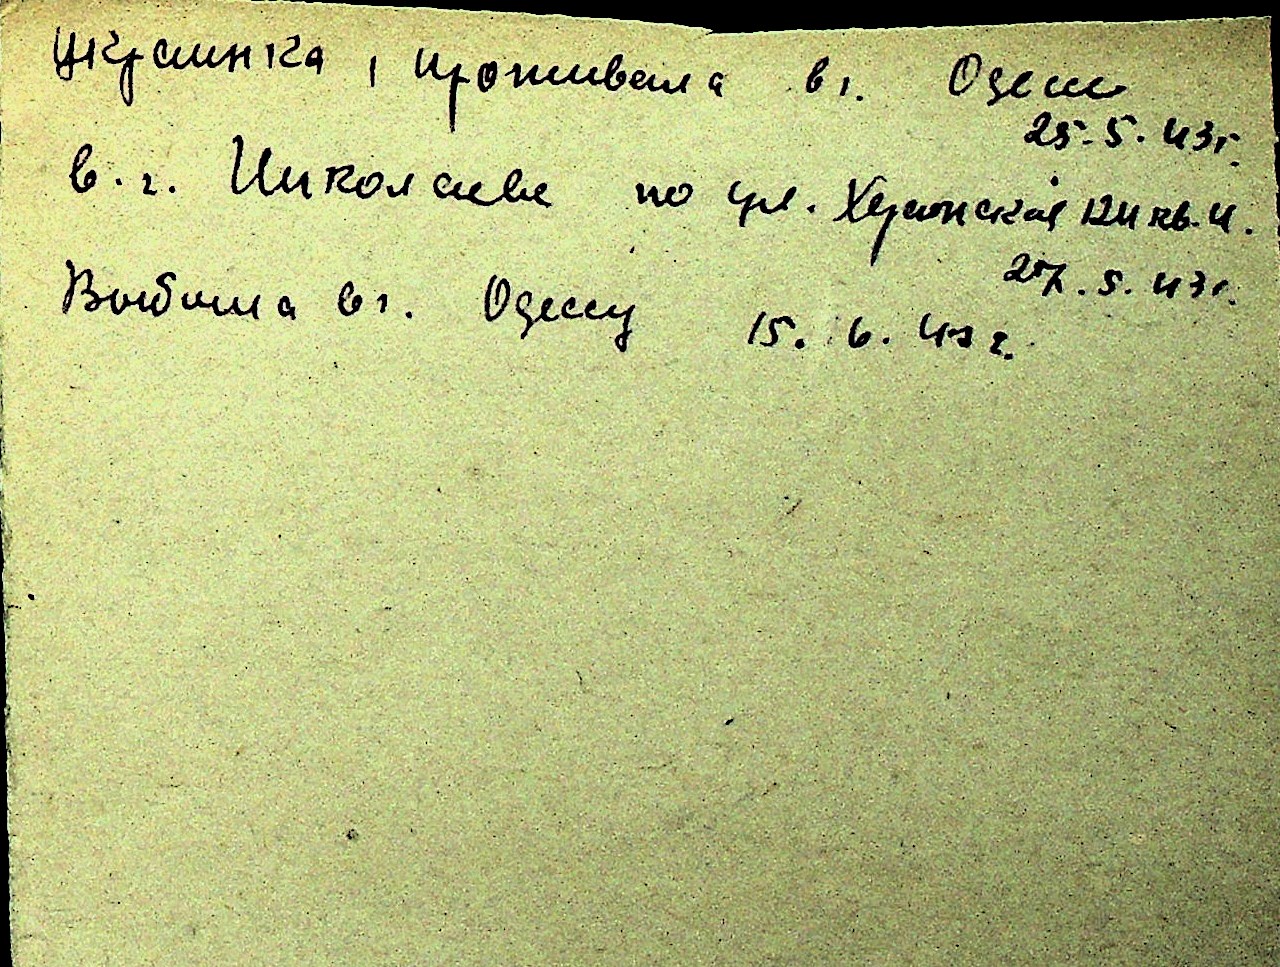 Украинка, проживала в г. Одессе
25.5.43г.
в.г. Николаеве по ул. Херсонской 124 кв. 4.
27.5.43г.
Выбыла в г. Одессу 15.6.43г.